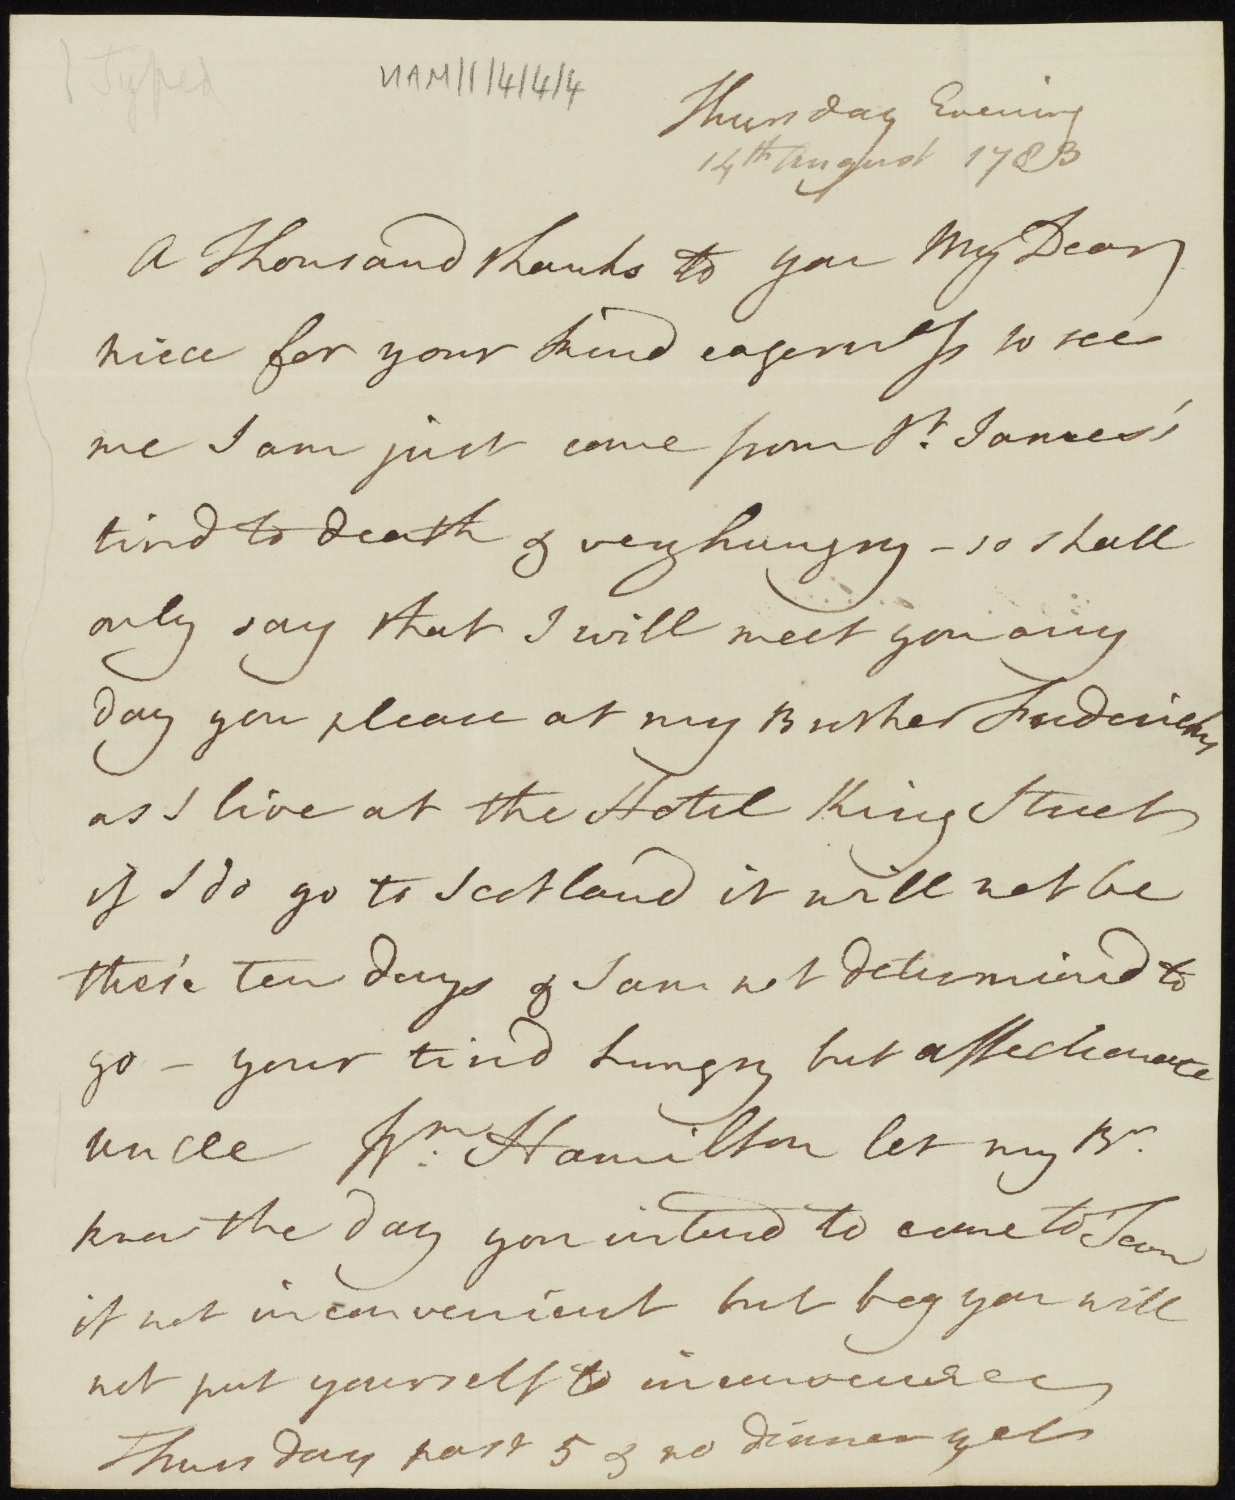 Typed
HAM/1/4/4/4
Thursday Evening
14th August 1783
A Thousand thanks to you My Dear
niece for your kind eagerness to see
me I am just come from St. James's
tired to death & very hungry - so shall
only say that I will meet you any
day you please at my Brother Fredericks
as I live at the Hotel King Street
if I do go to Scotland it will not be
these ten days & I am not determined to
go - your tired hungry but affectionate
uncle Wm: Hamilton let my Br.
know the day you intend to come to Town
if not inconvenient but beg you will
not put yourself to inconvenience
Thursday past 5 & no dinner yet